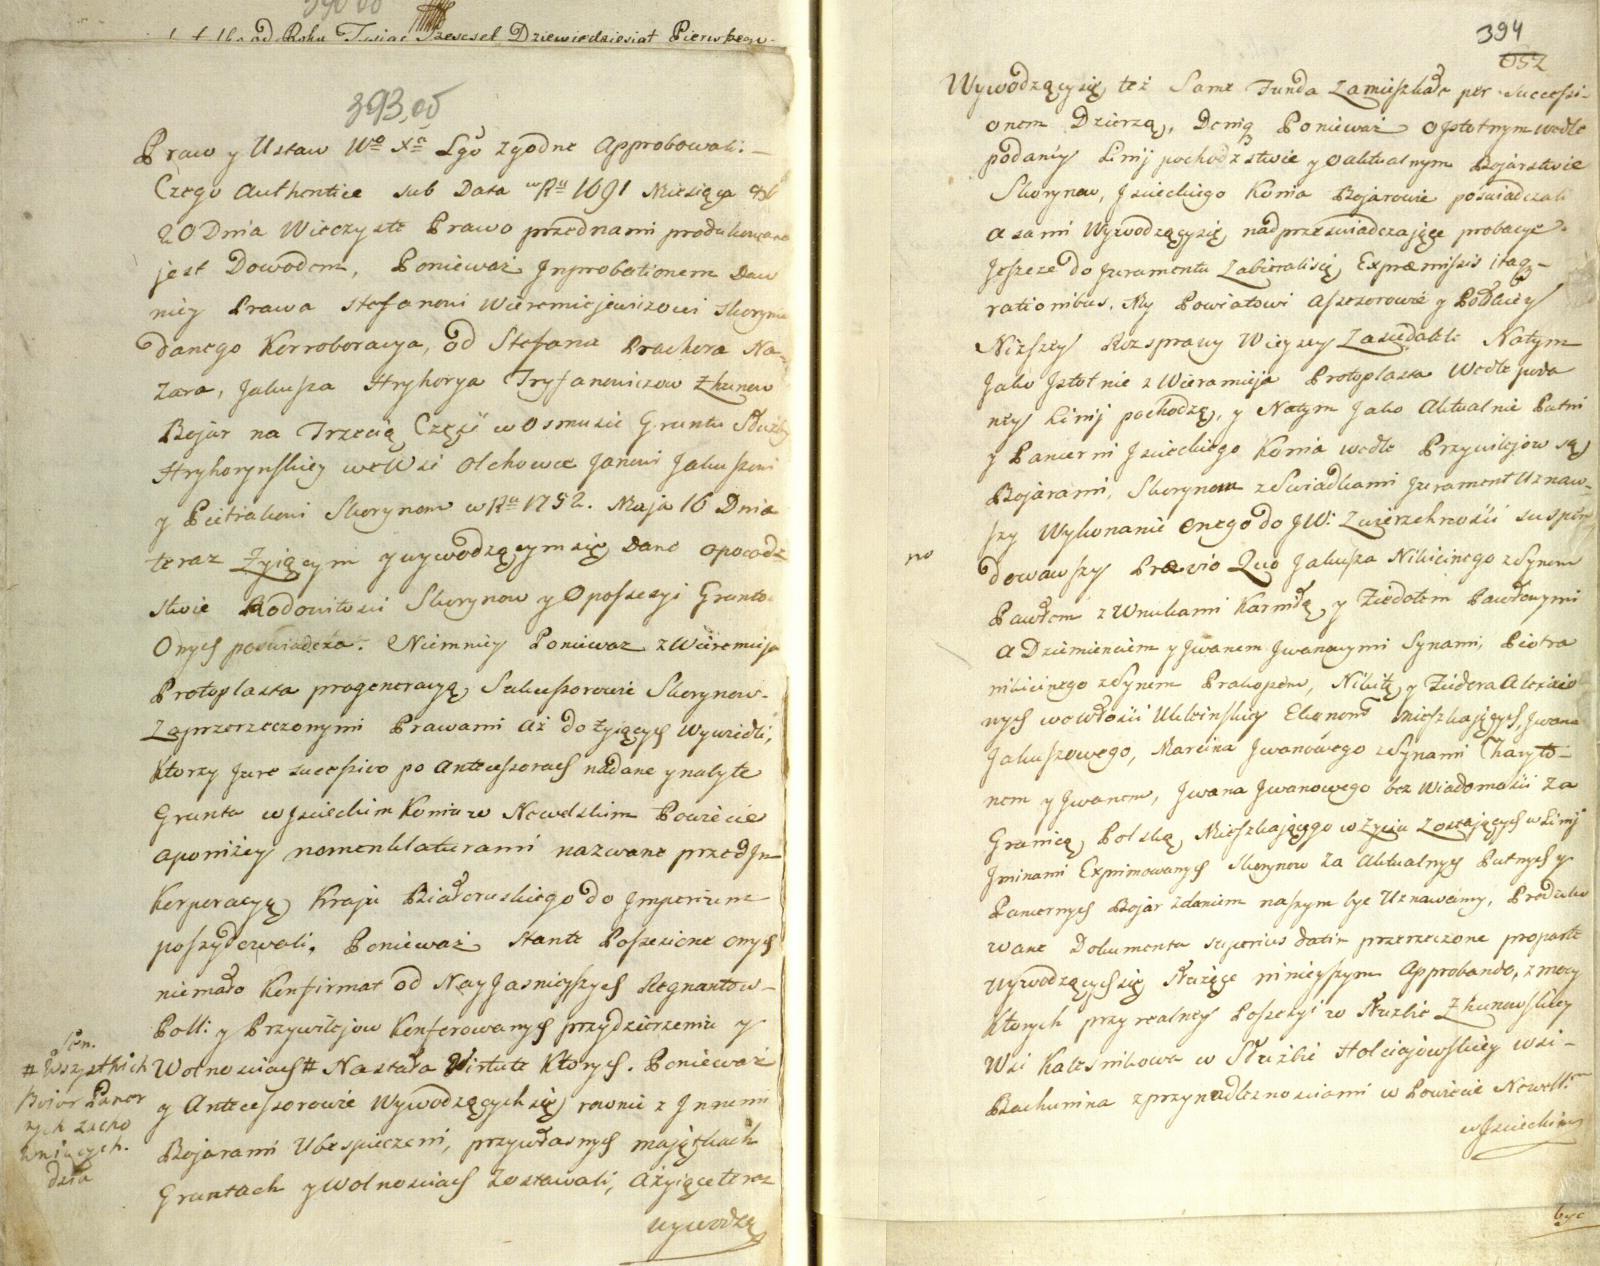 od Roku Tysiąc Szescset Dziewiedziesiat Pierwszego
393,05
Praw y Ustaw Wo Xa Lgo zgodne Approbowali.
Czego Authentice sub Data w Ru 1691 Miesiąca
20 Dnia Wieczyste Prawo przednami produkowane
jest Dowodem, Ponieważ Inprobationem Daw
niey Prawa Stefanowi Wieremiejewiczowi Skoryn
danego Korroboracya, od Stefana Prachora Na-
zara, Jakusza Hryhorya Tryfanowiczow Zkunow
Bojar na Trzecią Część w Osmusie Gruntu Służby
Hryhorynskiey we Wsi Olchowce Janowi Jakuszowi
y Pietrakowi Skorynom w Ru 1752. Maja 16 Dnia
teraz Żyiącym y wywodzącym się Dane opowodz
stwie Rodowitosci Skorynow y O possesyi Gruntow
Onych poswiadcza. Niemniey Poniewaz z Wieremieja
Protoplasta progeneracyą Sukcessorowie Skorynow
Zaprzerzeczonymi Prawami Aż do żyiących Wywiedli,
Ktorzy Jure successivo po Antecessorach nadane y nabyte
Grunta w Jsieckim Koniu w Newelskim Powiecie
aponiżey nomenklaturami nazwane przed Jn
Korporacyą Kraju Białoruskiego do Imperium
possydowali, Ponieważ stante Possesione onych
niemało Konfirmat od Nayjasnieyszych Regnantow
Poll: y Przywilejow Konferowanych przydzierzeniu y
Wolnosciach # Nastała Virtute Ktorych. Ponieważ
y Antecessorowie Wywodzących się rownie z Jnnemi
Bojarami Ubespieczeni, przywłasnych majętkach
Gruntach y Wolnosciach Zostawali, Ażyiące teraz
wywodzą
# Wszystkich
Bojar Pancer
nych zacho
wuiących.
394
Wywodzący się też Same Funda Zamieszkałe per Successi-
onem Dzierzą, Demię Ponieważ O Jstotnym wedle
podaney Linij pochodzstwie y o aktualnym Bojarstwie
Skorynow, Jsieckiego Konia Bojarowie poswiadczali
a sami Wywodzący się nadprzeswiadczaiące probacye
Jeszcze do Juramentu Zabieralisię Expræmissis itaq
rationibus. My Powiatowi Assessorowie y Podług
Niższey Rozsprawy Wieyscy Zasiędatele Natym
Jako Jstotnie z Wieramieja Protoplasta Wedle poda
ney Linij pochodzą, y Natym Jako Aktualnie Putni
y Pancerni Jsieckiego Konia wedle Przywilejow są
Bojarami, Skorynom z Swiadkami Jurament Uznaw-
szy Wykonanie Onego do JW: Zwierzchnosci suspen
no
dowawszy Prævio Quo Jakusza Nikicinego z Synem
Pawłem z Wnukami Karmiłą y Fiedotem Pawłowymi
a Dziemieniem y Jwanem Jwanowymi Synami, Piotra
nikicinego z Synem Prakopem, Nikitę y Fiedora Alexieio
nych wowłosci Ukleinskiey Ekonom Mieszkających, Jwana
Jakuszowego, Marcina Jwanowego z Synami Charyto-
nem y Jwanem, Jwana Jwanowego bez Wiadomosci Za
Granicą Polską Mieszkającego w Życiu Zostających w Linij
Jminami Exprimowanych Skorynow za Aktualnych Putnych y
Pancernych Bojar Zdaniem naszym byc Uznawamy, Produko
wane Dokumenta superius datis przerzeczone proparte
wywodzących się Służące ninieyszym Approbando, z mocy
Ktorych przy realney Possesyi w Służbie Zkunowskiey
Wsi Kalesnikowa w Służbie Holciajowskiey wsi
Bachunina z przynadleznosciami w Powiecie Newell:
w Jsieckim
byc